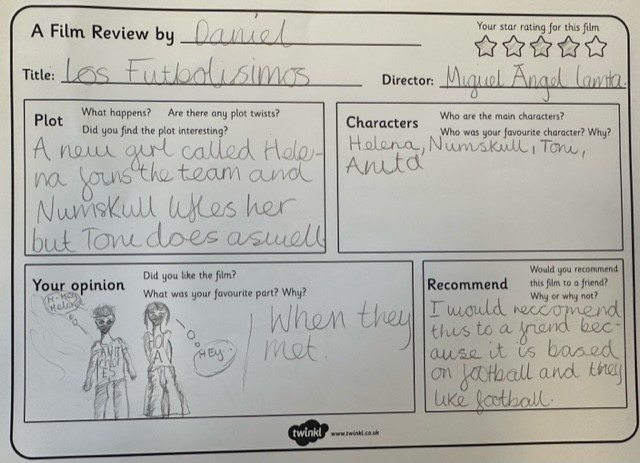 A Film Review by Daniel
Your star rating for this film
Title: Los Futbolisimos
Director: Miguel Ángel Lamta.
Plot
What happens? Are there any plot twists?
Did you find the plot interesting?
A new girl called Hele-
na joins the team and
Numskull likes her
but Toni does aswell
Characters
Who are the main characters?
Who was your favourite character? Why?
Helena, Numskull, Toni,
Anita
Your opinion
Did you like the film?
What was your favourite part? Why?
Helena
HEY
When they
met.
Recommend
Would you recommend
this film to a friend?
Why or why not?
I would reccomend
this to a friend bec-
ause it is based
on football and they
like football.
twinkl www.twinkl.co.uk